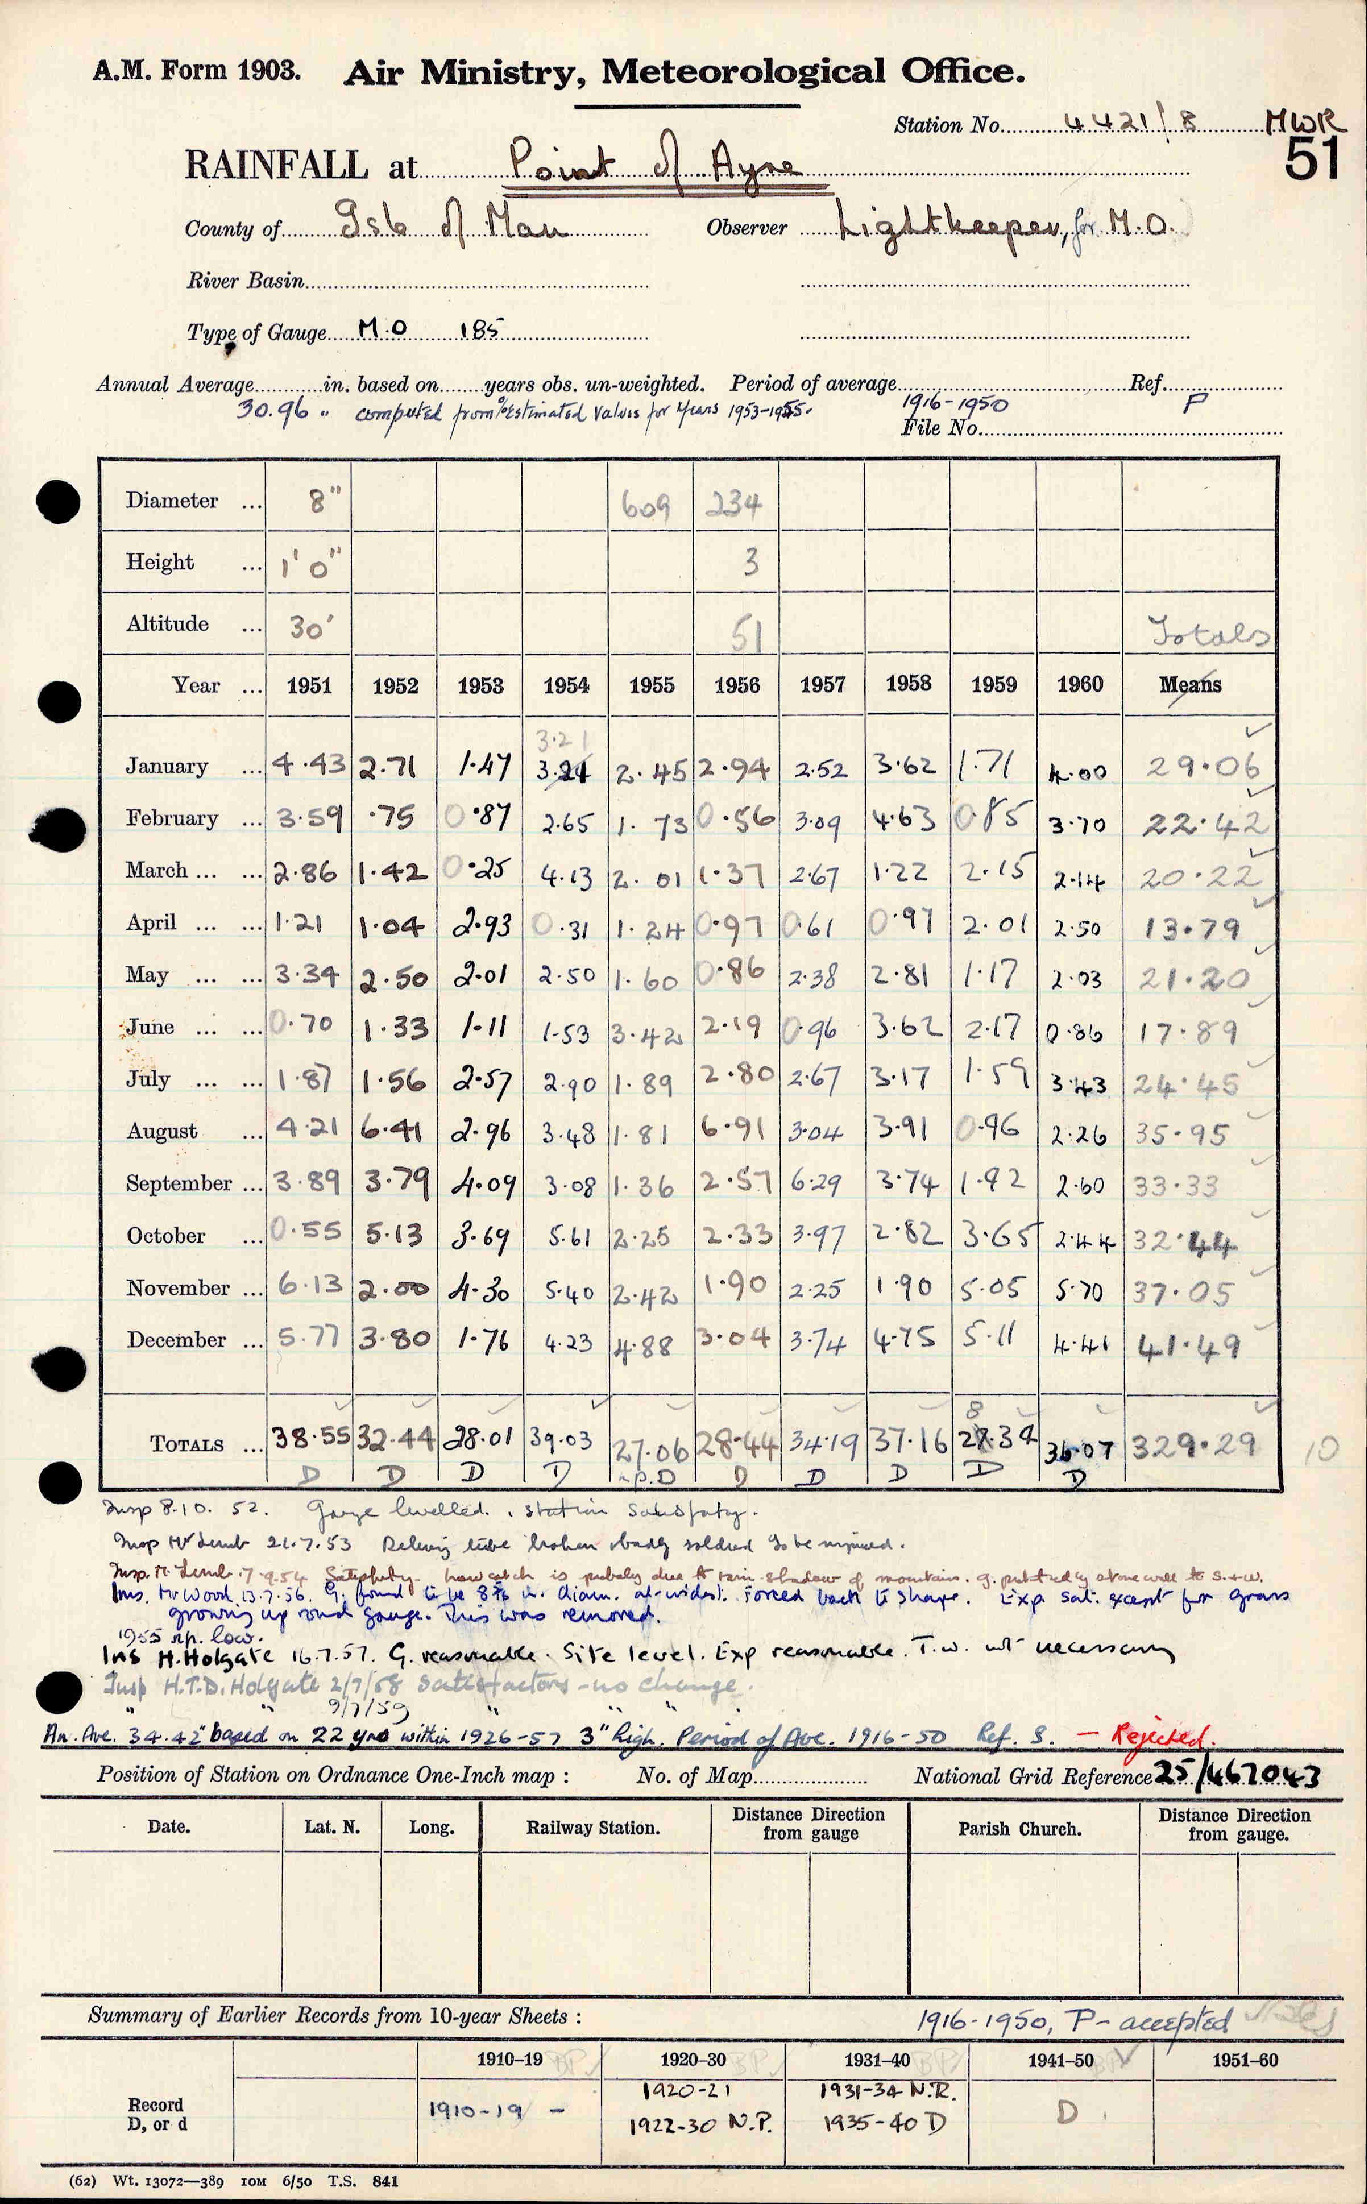 A.M. Form 1903. Air Ministry, Meteorological Office.
Station No. 4421/8 MWR
RAINFALL at Point of Ayre 51
County of Isle of Man Observer Lightkeeper, for M.O.
River Basin
Type of Gauge M.O 185
Annual Average in. based on years obs. un-weighted. Period of average 1916-1950 Ref. P
30.96 " computed from % Estimated Values for years 1953-1955.
File No.
Diameter ... 8" 609 234
Height ... 1' 0" 3
Altitude ... 30' 51 Totals
Year ... 1951 1952 1953 1954 1955 1956 1957 1958 1959 1960 Means
3.21
January ... 4.43 2.71 1.47 3.21 2.45 2.94 2.52 3.62 1.71 4.00 29.06
February ... 3.59 .75 0.87 2.65 1.73 0.56 3.09 4.63 0.85 3.70 22.42
March ... ... 2.86 1.42 0.25 4.13 2.01 1.37 2.67 1.22 2.15 2.14 20.22
April ... ... 1.21 1.04 2.93 0.31 1.24 0.97 0.61 0.97 2.01 2.50 13.79
May ... ... 3.34 2.50 2.01 2.50 1.60 0.86 2.38 2.81 1.17 2.03 21.20
June ... ... 0.70 1.33 1.11 1.53 3.42 2.19 0.96 3.62 2.17 0.86 17.89
July ... ... 1.87 1.56 2.57 2.90 1.89 2.80 2.67 3.17 1.59 3.43 24.45
August ... 4.21 6.41 2.96 3.48 1.81 6.91 3.04 3.91 0.96 2.26 35.95
September ... 3.89 3.79 4.09 3.08 1.36 2.57 6.29 3.74 1.92 2.60 33.33
October ... 0.55 5.13 3.69 5.61 2.25 2.33 3.97 2.82 3.65 2.44 32.44
November ... 6.13 2.00 4.30 5.40 2.42 1.90 2.25 1.90 5.05 5.70 37.05
December ... 5.77 3.80 1.76 4.23 4.88 3.04 3.74 4.75 5.11 4.41 41.49
8
TOTALS ... 38.55 32.44 28.01 39.03 27.06 28.44 34.19 37.16 27.34 36.07 329.29 10
D D D D n.p.D D D D D D
Insp 8.10.52. Gauge levelled. Station satisfactory.
Insp Mr Lamb 21.7.53 tube broken badly soldered to be
Insp. Mr Lamb 7.9.54 Satisfactory. Low catch is probably due to rain-shadow of mountain. G. protected by stone wall to S.+W.
Ins. Mr Wood 13.7.56. G. found to be in. diam. at widest. Forced back to shape. Exp sat. except for grass
growing up round gauge. This was removed.
1955 n.p. low.
Ins H.Holgate 16.7.57. G. reasonable. Site level. Exp reasonable. T.W. not necessary
Insp H.T.D. Holgate 2/7/58 Satisfactory - no change.
" " 9/7/59 " " "
An. Ave. 34.42" based on 22 yrs within 1926-57 3" high. Period of Ave. 1916-50 Ref. S. - Rejected.
Position of Station on Ordnance One-Inch map : No. of Map National Grid Reference 25/467043
Date. Lat. N. Long. Railway Station. Distance Direction from gauge Parish Church. Distance Direction from gauge.
Summary of Earlier Records from 10-year Sheets : 1916-1950, P - accepted
1910–19 1920–30 1931–40 1941–50 1951–60
Record D, or d
1910-19 - 1920-21 1931-34 N.R. D
1922-30 N.P. 1935-40 D
(62) Wt. 13072—389 IOM 6/50 T.S. 841